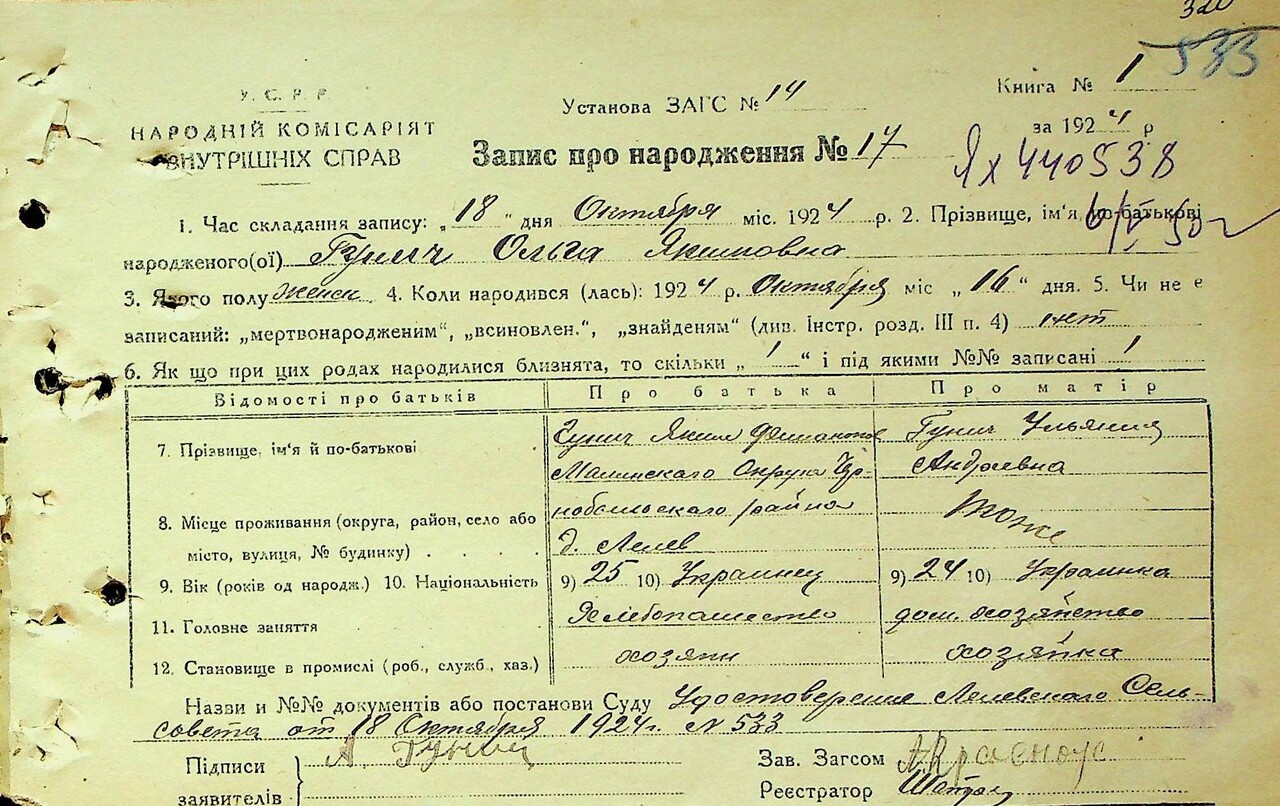 320
533
У. С. Р. Р.
НАРОДНІЙ КОМІСАРІЯТ
ВНУТРІШНІХ СПРАВ
Установа ЗАГС № 14
Книга № 1
за 1924 р
Запис про народження № 17
Ях 440538
1. Час складання запису: „18" дня Октября міс. 1924 р. 2. Прізвище, ім'я по-батькові
народженого(ої) Гунич Ольга Якимовна
3. Якого полу женск 4. Коли народився (лась): 1924 р. Октября міс „16" дня. 5. Чи не є
записаний: „мертвонародженим", „всиновлен.", „знайденям" (див. Інстр. розд. III п. 4) нет
6. Як що при цих родах народилися близнята, то скільки „1" і під якими №№ записані 1
Відомості про батьків Про батька Про матір
7. Прізвище, ім'я й по-батькові Гунич Яким Гунич Ульяния
Малинского Округа Чер- Андреевна
8. Місце проживання (округа, район, село або нобыльского района тоже
місто, вулиця, № будинку) . . . . д. Лелев
9. Вік (років од народж.) 10. Національність 9) 25 10) Украинец 9) 24 10) Украинка
11. Головне заняття Хлебопашество дом. хозяйство
12. Становище в промислі (роб., служб., хаз.) хозяин хозяйка
Назви и №№ документів або постанови Суду Удостоверение Лелевского Сель-
совета от 18 Октября 1924 г. N 533
Підписи А Гунич Зав. Загсом А.Красноус
заявителів Реєстратор